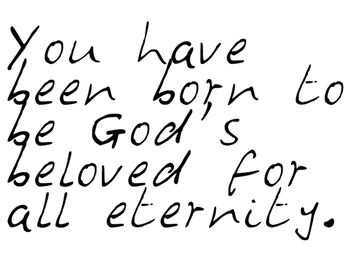 You have
been born to
be God's
beloved for
all eternity.